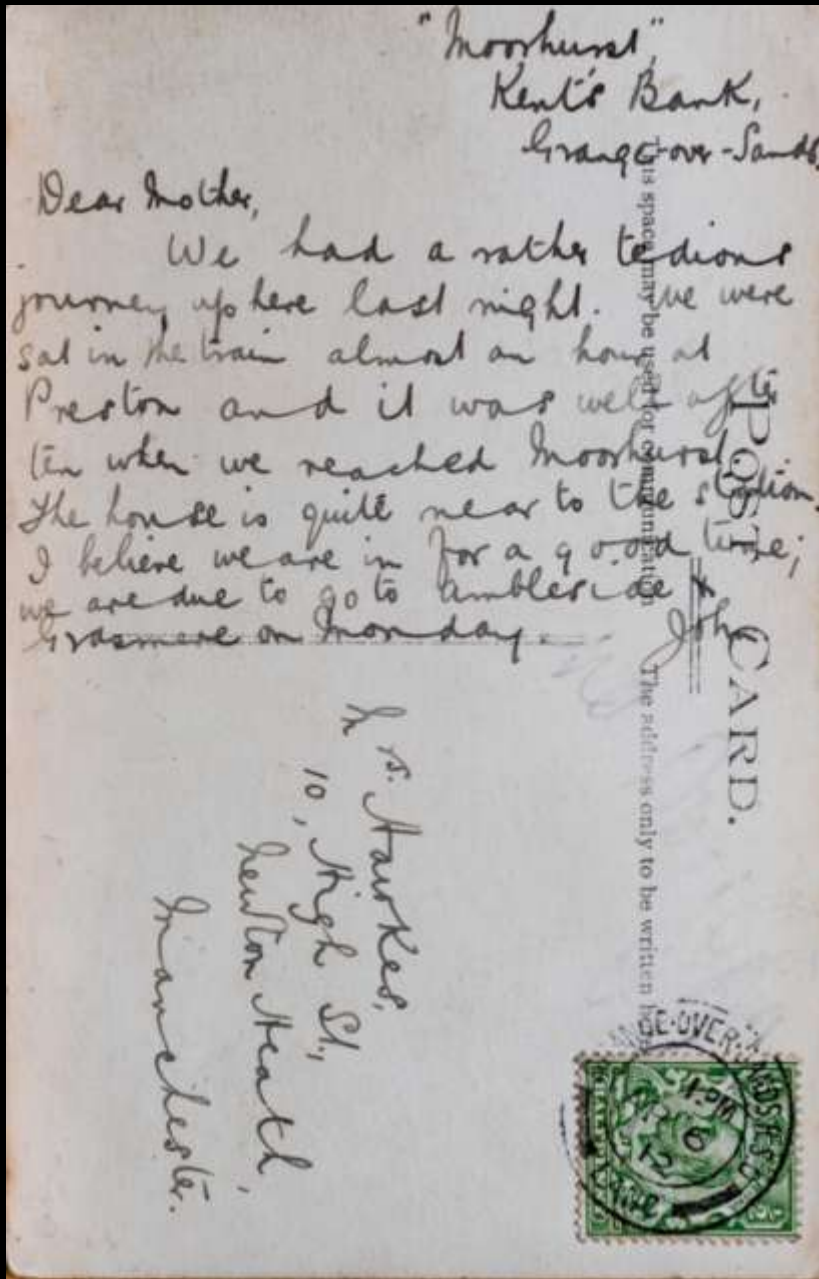 "Moorhurst",
Kent's Bank,
Grange-over-Sands.
Dear Mother,
We had a rather tedious
journey up here last night. We were
sat in the train almost an hour at
Preston and it was well after
ten when we reached Moorhurst.
The house is quite near to the station.
I believe we are in for a good time;
we are due to go to Ambleside &
Grasmere on Monday. John
POST CARD.
This space may be used for communication
The address only to be written
Mrs. Hawkes,
10, High St.,
Newton Heath,
Manchester.
GE-OVER-SANDS
1. PM
6
12